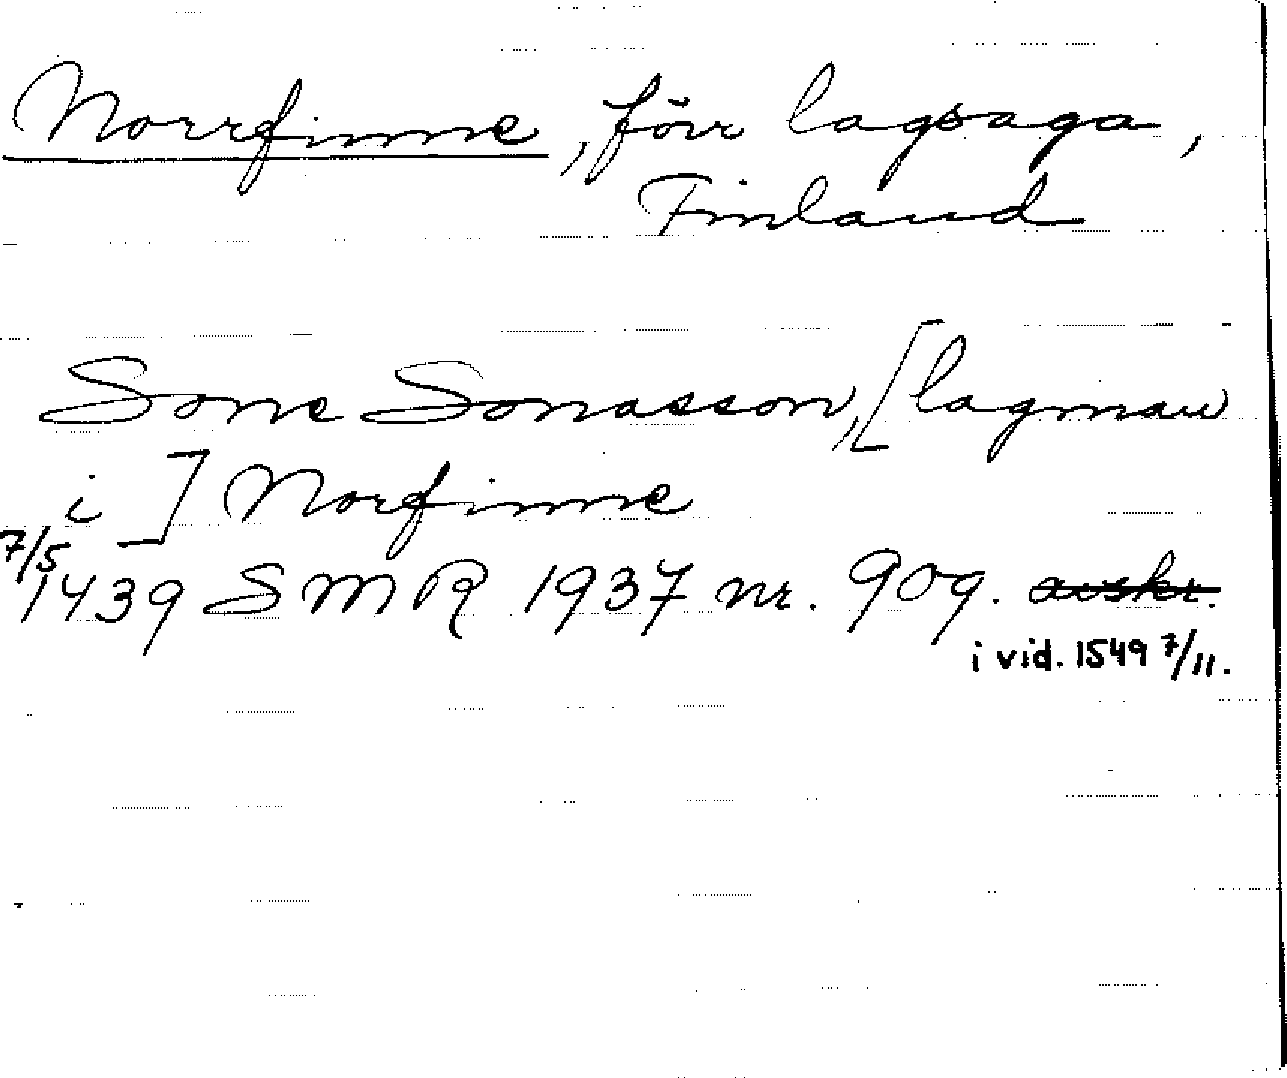 Norrfinne, förr lagsaga,
Finland
Sone Sonasson, [lagman
i ] Norfinne
7/5 1439 SMR 1937 nr. 909. avskr.
i vid. 1549 7/11.